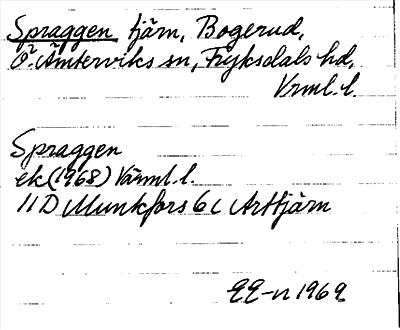 Spraggen tjärn, Bogerud,
Ö. Ämterviks sn, Fryksdals hd,
Vrml. l.
Spraggen
ek (1968) Värml. l.
11 D Munkfors 6 c Arttjärn
1969